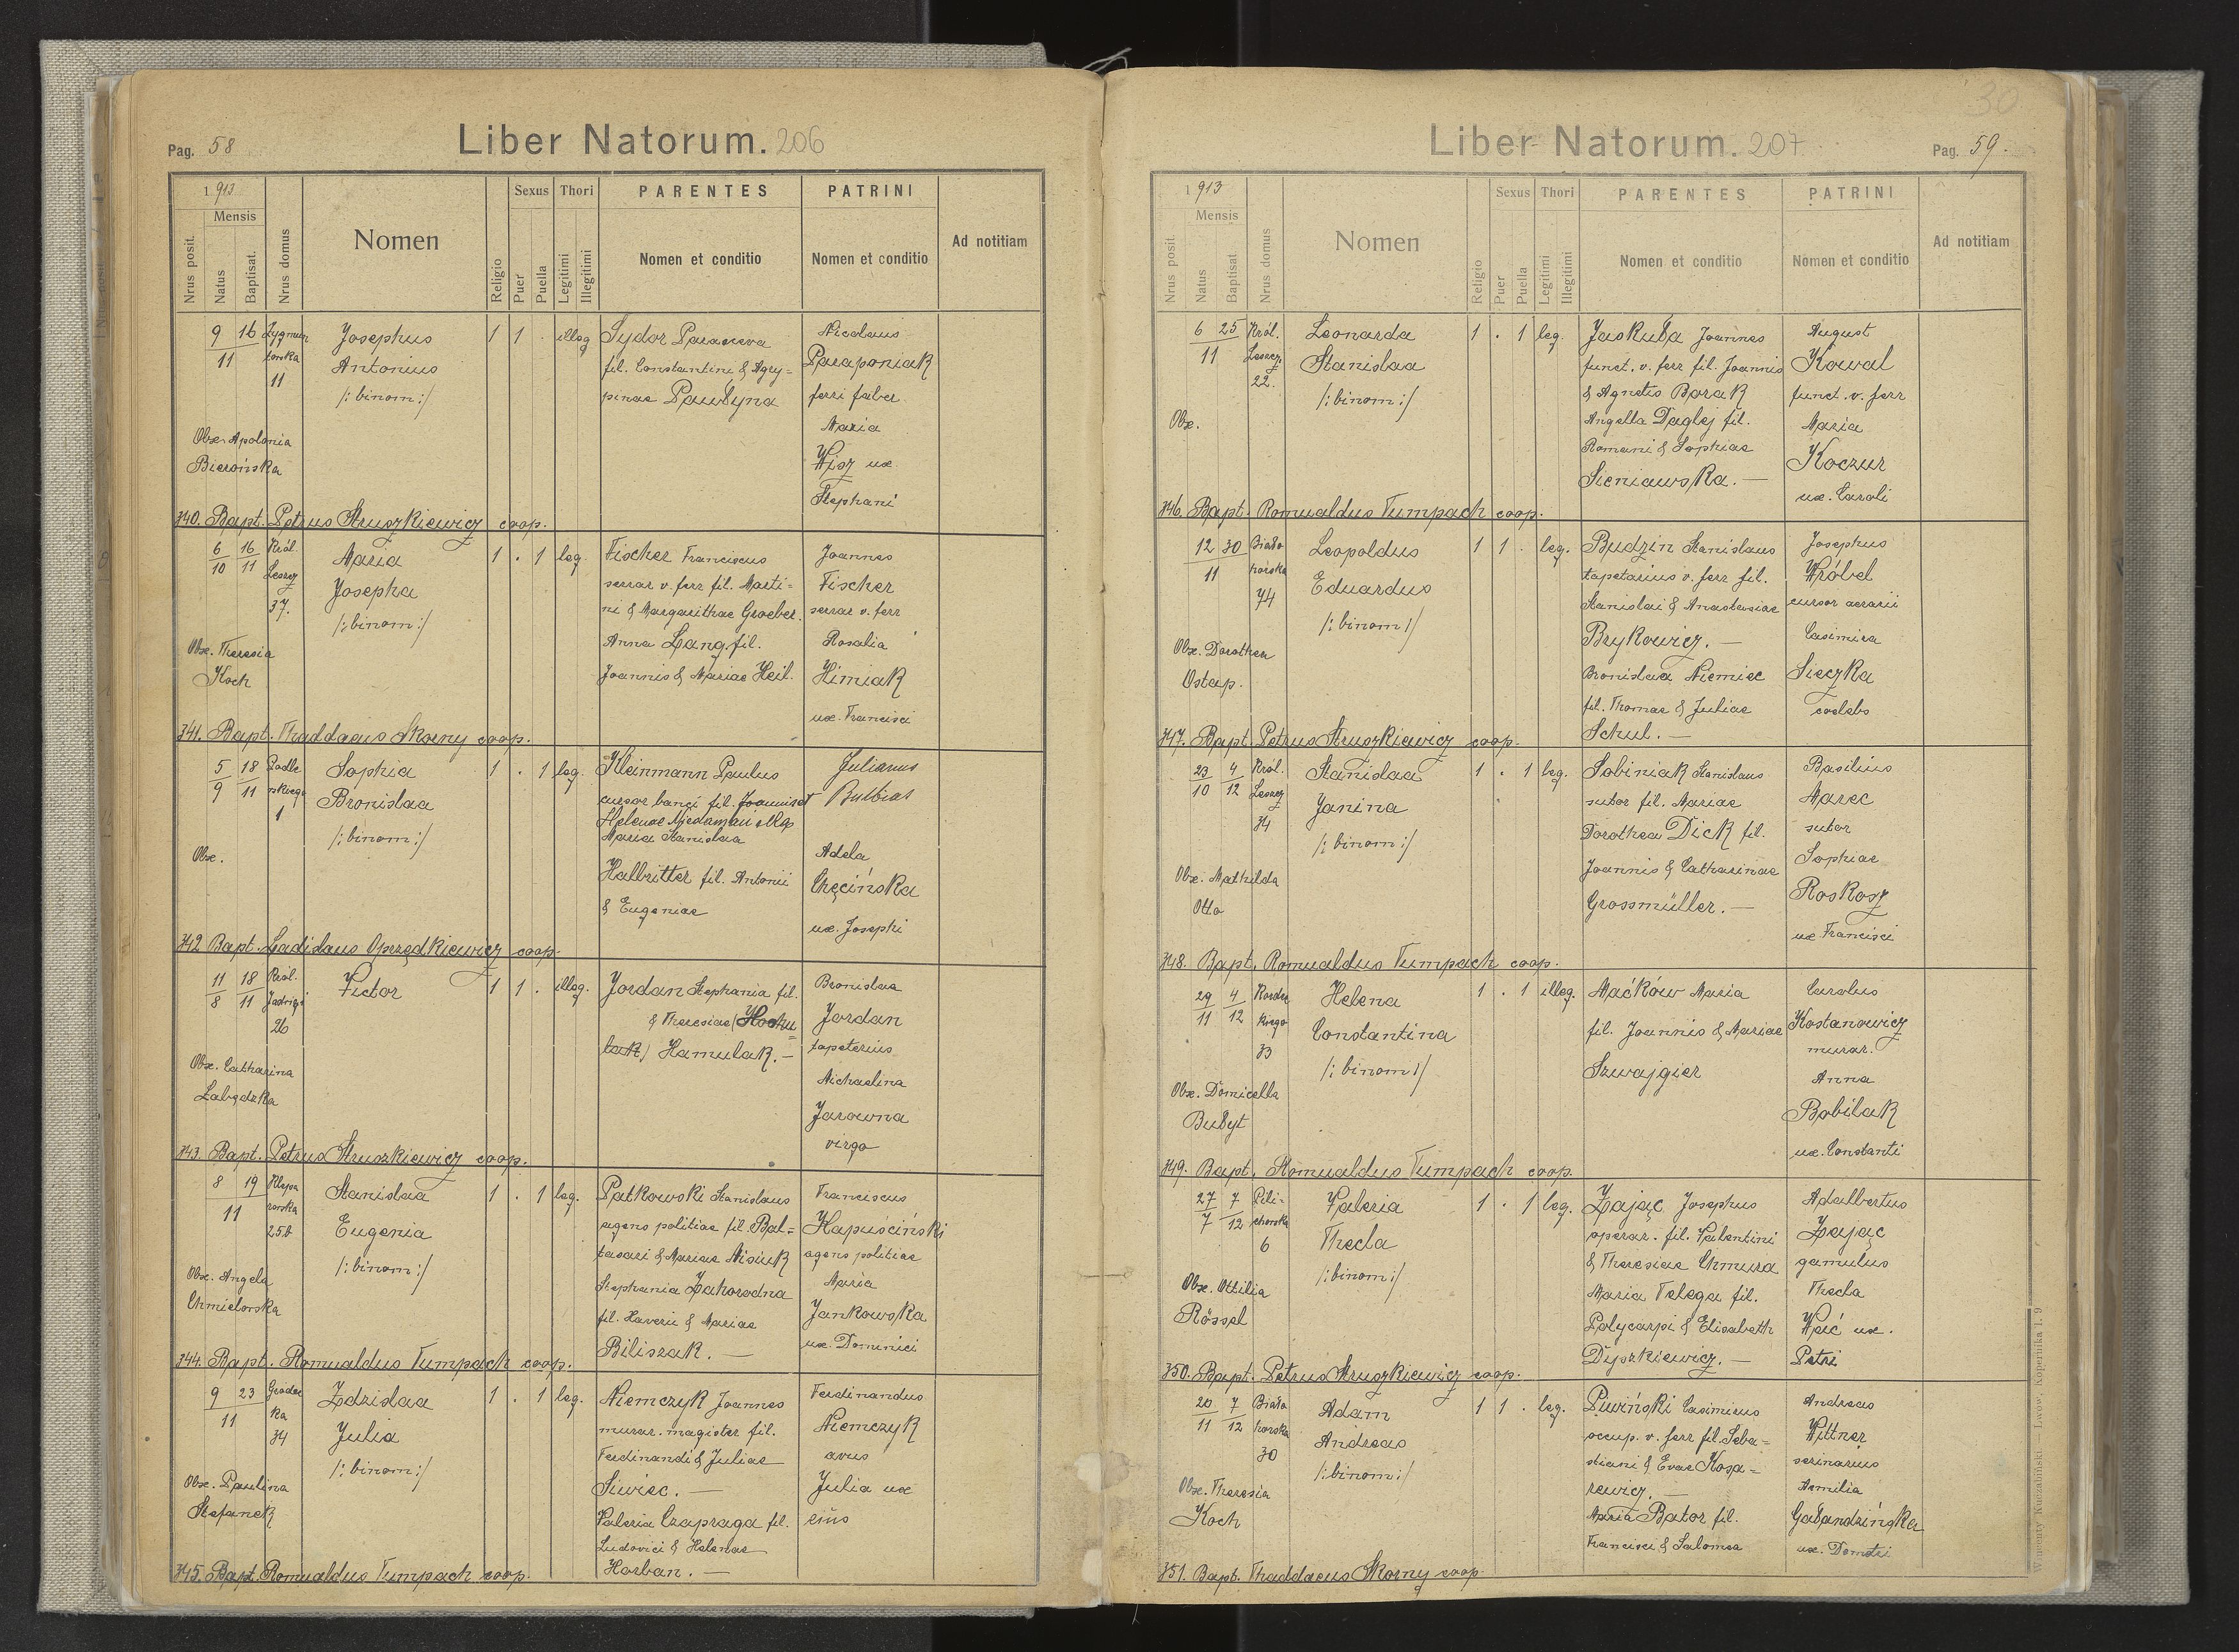 Pag. 58
Liber Natorum. 206
1913
Mensis
Nrus posit.
Natus
Baptisat.
Nrus domus
Nomen
Religio
Sexus
Puer
Puella
Thori
Legitimi
Illegitimi
PARENTES
Nomen et conditio
PATRINI
Nomen et conditio
Ad notitiam
9 16 Zygmun
11 towska
11
Josephus
Antonius
/: binom :/
1 1 . illeg
Sydor Paraneva
fil. Constantini & Agry=
pinae Pawłyna
Nicolaus
Paraponiak
ferri faber
Maria
Wisz ux.
Stephani
Obx. Apolonia
Bierońska
340. Bapt. Petrus Struszkiewicz coop.
6 16 Król.
10 11 Leszcz
37.
Maria
Josepha
/: binom :/
1 . 1 leg.
Fischer Franciscus
serrar v. ferr fil. Marti=
ni & Margarithae Groeber.
Anna Lang. fil.
Joannis & Mariae Heil.
Joannes
Fischer
serrar v. ferr
Rosalia
Himiak
ux. Francisci
Obx. Theresia
Koch
341. Bapt. Thaddaeus Skorny coop.
5 18 Podle
9 11 wskiego
1
Sophia
Bronislaa
/: binom :/
1 . 1 leg.
Kleinmann Paulus
cursor banci fil. Joannis et
Helenae
Maria Stanislaa
Halbritter fil. Antonii
& Eugeniae
Julianus
Adela
Chęcińska
ux. Josephi
Obx.
342 Bapt. Ladislaus Oprzędkiewicz coop.
11 18 Król.
8 11 Jadwigi
26
Victor
1 1 . illeg.
Jordan Stephania fil.
& Theresiae
Hamulak. —
Bronislaa
Jordan
tapeterius
Michaelina
Jarowna
virgo
Obx. Catharina
Łabędzka
343. Bapt. Petrus Struszkiewicz coop.
8 19 Klepa
11 rowska
25b
Stanislaa
Eugenia
/: binom :/
1 . 1 leg.
Patkowski Stanislaus
agens politiae fil Bal=
tasari & Mariae Misiuk
Stephania Zahorodna
fil. Xaverii & Mariae
Biliszak. —
Franciscus
Kapuściński
agens politiae
Maria
Jankowska
ux. Dominici
Obx. Angela
Chmielowska
344. Bapt. Romualdus Tumpach coop.
9 23 Gródec
11 ka
34
Zdzislaa
Julia
/: binom :/
1 . 1 leg.
Niemczyk Joannes
murar. magister fil.
Ferdinandi & Juliae
Siwiec. —
Valeria Czapraga fil.
Ludovici & Helenae
Horban. —
Ferdinandus
Niemczyk
avus
Julia ux
eius
Obx. Paulina
Stefanek
345. Bapt. Romualdus Tumpach coop.
30
Liber Natorum. 207
Pag. 59.
1913
Mensis
Nrus posit.
Natus
Baptisat
Nrus domus
Nomen
Religio
Sexus
Puer
Puella
Thori
Legitimi
Illegitimi
PARENTES
Nomen et conditio
PATRINI
Nomen et conditio
Ad notitiam
6 25 Król.
11 Leszcz.
22.
Leonarda
Stanislaa
/: binom :/
1 . 1 leg.
Jaskuła Joannes
funct. v. ferr fil. Joannis
& Agnetis Barak
Angella Daglej fil.
Romani & Sophiae
Sieniawska. —
August
Kowal
funct. v. ferr
Maria
Koczur
ux. Caroli
Obx.
346. Bapt. Romualdus Tumpach coop.
12 30 Biało
11 horska
74
Leopoldus
Eduardus
/: binom :/
1 1 . leg.
Budzin Stanislaus
tapetarius v. ferr fil.
Stanislai & Anastasiae
Brykowicz. —
Bronislaa Niemiec
fil. Thomae & Juliae
Schul. —
Josephus
Wróbel
cursor aerarii
Casimira
Sieczka
coelebs
Obx. Dorothea
Ostap.
347. Bapt. Petrus Struszkiewicz coop.
23 4 Król.
10 12 Leszcz
34
Stanislaa
Janina
/: binom :/
1 . 1 leg.
Sobiniak Stanislaus
sutor fil. Mariae
Dorothea Dick fil.
Joannis & Catharinae
Grossmüller. —
Basilius
Marec
sutor
Sophiae
Roskosz
ux Francisci
Obx. Mathilda
Otto
348. Bapt. Romualdus Tumpach coop.
29 4 Kordec
11 12 kiego
33
Helena
Constantina
/: binom :/
1 . 1 illeg.
Maćków Maria
fil. Joannis & Mariae
Szwajgier
Carolus
Kostanowicz
murar.
Anna
Bobilak
ux. Constanti
Obx. Domicella
Bułyt
349. Bapt. Romualdus Tumpach coop.
27 7 Peli-
7 12 chowska
6
Valeria
Thecla
/: binom :/
1 . 1 leg.
Zając Josephus
operar. fil. Valentini
& Theresiae Chmura
Maria Telega fil.
Polycarpi & Elisabeth
Dyszkiewicz. —
Adalbertus
Zając
gamulus
Thecla
Weić ux.
Petri
Obx. Ottilia
Rössel
350. Bapt. Petrus Struszkiewicz coop.
20 7 Biało
11 12 horska
30
Adam
Andreas
/: binom :/
1 1 . leg.
Piwiński Casimirus
occup. v. ferr fil. Seba=
stiani & Evae Kosa=
rewicz. —
Maria Bator fil.
Francisci & Salomea
Andreas
Wittner
scrinarius
Aemilia
Gałandzińska
ux. Demetri
Obx. Theresia
Koch
351. Bapt. Thaddaeus Skorny coop.
Wincenty Kuczabiński — Lwów, Kopernika l. 9